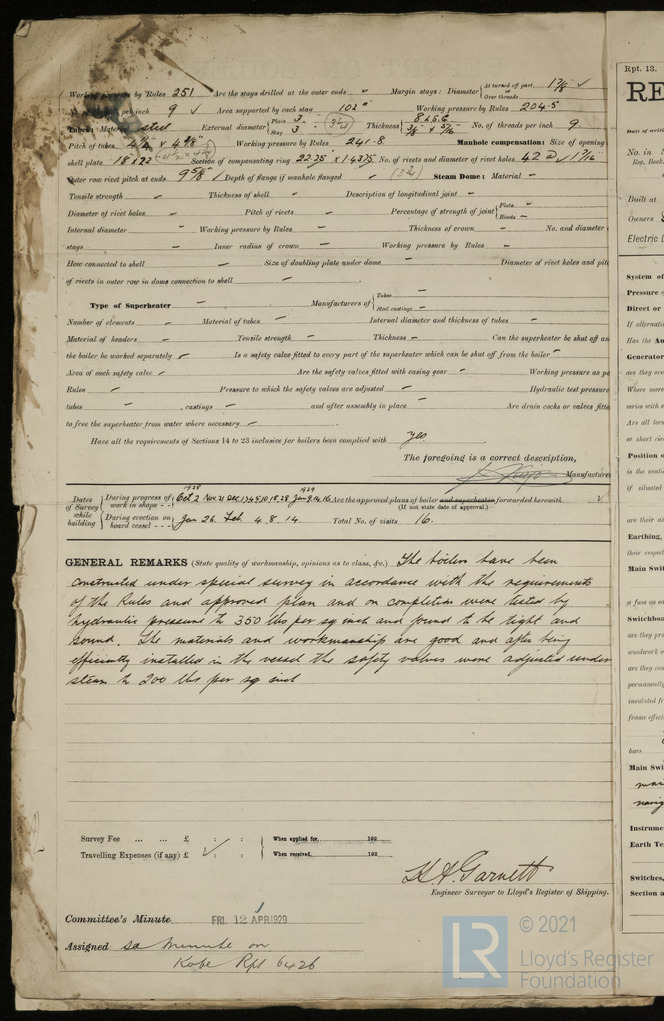 Working pressure by Rules 251 Are the stays drilled at the outer ends – Margin stays: Diameter { At turned off part. 1⅞ ✓
Over threads –
per inch 9 ✓ Area supported by each stay 102 □" Working pressure by Rules 204.5
Tubes: Material steel External diameter { Plain 3 Stay 3 Thickness { No. of threads per inch 9
Pitch of tubes Working pressure by Rules 241.8 Manhole compensation: Size of opening
shell plate 18 x 22 Section of compensating ring 22.25 x 1.4375 No. of rivets and diameter of rivet holes 42 @ 1 7/16
Outer row rivet pitch at ends 9⅝ Depth of flange if manhole flanged – (3¼) Steam Dome: Material –
Tensile strength – Thickness of shell – Description of longitudinal joint –
Diameter of rivet holes – Pitch of rivets – Percentage of strength of joint { Plate –
Rivets –
Internal diameter – Working pressure by Rules – Thickness of crown – No. and diameter
stays – Inner radius of crown – Working pressure by Rules –
How connected to shell – Size of doubling plate under dome – Diameter of rivet holes and pit
of rivets in outer row in dome connection to shell –
Type of Superheater – Manufacturers of { Tubes –
Steel castings –
Number of elements – Material of tubes – Internal diameter and thickness of tubes –
Material of headers – Tensile strength – Thickness – Can the superheater be shut off an
the boiler be worked separately – Is a safety valve fitted to every part of the superheater which can be shut off from the boiler –
Area of each safety valve – Are the safety valves fitted with easing gear – Working pressure as pe
Rules – Pressure to which the safety valves are adjusted – Hydraulic test pressure
tubes – , castings – and after assembly in place – Are drain cocks or valves fitte
to free the superheater from water where necessary –
Have all the requirements of Sections 14 to 23 inclusive for boilers been complied with yes
The foregoing is a correct description,
Manufacturer
Dates of Survey while building { During progress of work in shops - - } 1928 Oct. 2 Nov. 21 Dec. 1 3 4 5 10 18 28 1929 Jan 9 14 16 Are the approved plans of boiler and superheater forwarded herewith ✓
(If not state date of approval.)
{ During erection on board vessel - - - } Jan 26. Feb. 4 8 14 Total No. of visits 16.
GENERAL REMARKS (State quality of workmanship, opinions as to class, &c.) The boilers have been
constructed under special survey in accordance with the requirements
of the Rules and approved plan and on completion were tested by
hydraulic pressure to 350 lbs per sq inch and found to be tight and
sound. The materials and workmanship are good and after being
efficiently installed in the vessel the safety valves were adjusted under
steam to 200 lbs per sq inch
Survey Fee ... ... £ : : } When applied for, 192
Travelling Expenses (if any) £ : : } When received, 192
H. A. Garnett
Engineer Surveyor to Lloyd's Register of Shipping.
Committee's Minute FRI. 12 APR 1929
Assigned see minute on
Kobe Rpt 6426
Rpt. 13.
RE
Date of writ
No. in
Reg. Book.
Built at
Owners
Electric L
System of
Pressure of
Direct or
If alternatin
Has the Au
Generator
are they over
Where more
series with e
Are all ter
or short cir
Position o
is the venti
if situated
are their a
Earthing,
their respect
Main Swit
a fuse on e
Switchboa
are they pro
woodwork o
are they con
permanently
insulated fr
frame effect
bars
Main Swi
Instrume
Earth Te
Switches,
Section a
LR © 2021
Lloyd's Register
Foundation